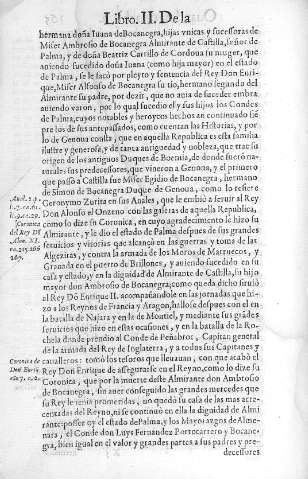 Libro. II. De la
hermana doña Iuana de Bocanegra, hijas vnicas y sucessoras de
Misẽr Ambrosio de Bocanegra Almirante de Castilla, señor de
Palma, y de doña Beatriz Carrillo de Cordoua su muger, que
auiendo sucedido doña Iuana (como hija mayor) en el estado
de Palma, se le sacó por pleyto y sentencia del Rey Don Enri-
que, Miser Alfonso de Bocanegra su tio, hermano legado del
Almirante su padre, por dezir, que no auia de suceder embra
auiendo varon, por lo qual sucedio el y sus hijos los Condes
de Palma, cuyos notables y heroycos hechos an continuado siẽ
pre los de sus antepassados, como cuentan las Historias, y por
lo de Genoua consta, que en aquella Republica es esta familia
ilustre y generosa, y de tanta antiguedad y nobleza, que trae su
origen de los antiguos Duques de Boemia, de donde fuerõ na-
turales sus predecessores, que vineron a Genoua, y el primero
que passò a Castilla fue Misẽr Egidio de Bocanegra, hermano
de Simon de Bocanegra Duque de Genoua, como lo refiere
Geronymo Zurita en sus Anales, que le embiò a seruir al Rey
Don Alonso el Onzeno con las galeras de aquella Republica,
como lo dize su Coronica, en cuyo agradecimiento le hizo su
Almirante, y le dio el estado de Palma despues de sus grandes
seruicios y vitorias que alcançò en las guerras y toma de las
Algeziras, y contra la armada de los Moros de Marruecos, y
Granada en el puerto de Brillones, y auiendo sucedido en su
casa y estado, y en la dignidad de Almirante de Castilla, su hijo
mayor don Ambrosio de Bocanegra, como queda dicho siruio
al Rey Dõ Enrique II. acompañandole en las jornadas que hi-
zo a los Reynos de Francia y Aragon, hallose despues con el en
la batalla de Najara y en la de Montiel, y mediante sus grãdes
seruicios que hizo en estas ocasiones, y en la batalla de la Ro-
chela donde prendio al Conde de Peñabroc, Capitan general
de la armada del Rey de Inglaterra, y a todos sus Capitanes y
caualleros: tomò los tesoros que lleuauan, con que acabò el
Rey Don Enrique de assegurarse en el Reyno, como lo dize su
Coronica, que por la muerte deste Almirante don Ambrosio
de Bocanegra, sin auer conseguido las grandes mercedes que
su Rey le tenia prometidas, no quedò su casa de las mas acre-
centadas del Reyno, ni se continuò en ella la dignidad de Almi-
rante: posseyó el estado de Palma, y los Mayorazgos de Alme-
nara, el Conde don Luys Fernandez Portocarrero y Bocane-
gra, bien igual en el valor y grandes partes a sus padres y pre-
decessores
Coronica
del Rey Dõ
Alon. XI.
Coronica de
Don Enriq.